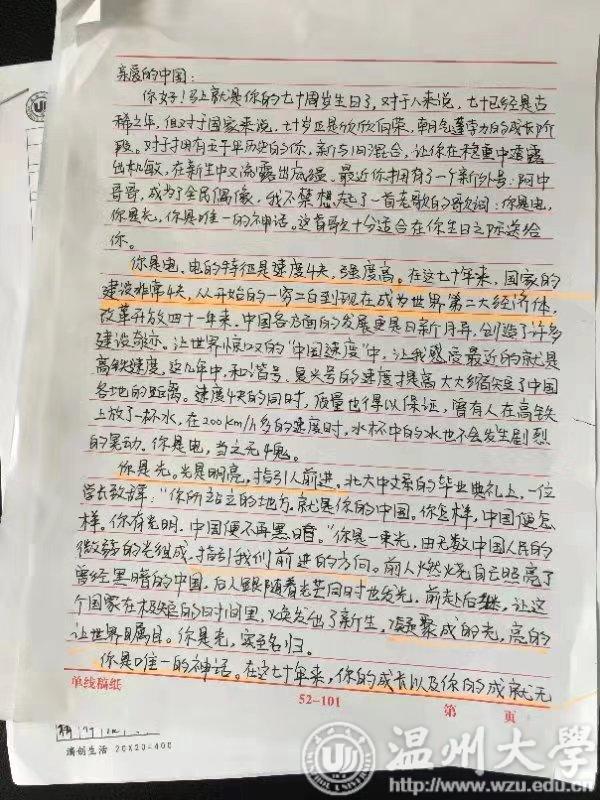 亲爱的中国：
你好！马上就是你的七十周岁生日了，对于人来说，七十已经是古
稀之年，但对于国家来说，七十岁正是欣欣向荣，朝气蓬勃的成长阶
段。对于拥有五千年历史的你，新与旧混合，让你在稳重中透露
出机敏，在新生中又流露出底蕴。最近你拥有了一个新外号：阿中
哥哥，成为了全民偶像，我不禁想起了一首老歌的歌词：你是电，
你是光，你是唯一的神话。这首歌十分适合在你生日之际送给
你。
你是电，电的特征是速度快，强度高。在这七十年来，国家的
建设非常快，从开始的一穷二白到现在成为世界第二大经济体，
改革开放四十一年来，中国各方面的发展更是日新月异，创造了许多
建设奇迹。让世界惊叹的“中国速度”中，让我感受最近的就是
高铁速度，这几年中，和谐号、复兴号的速度提高大大缩短了中国
各地的距离。速度快的同时，质量也得以保证，曾有人在高铁
上放了一杯水，在200km/h多的速度时，水杯中的水也不会发生剧烈
的晃动。你是电，当之无愧。
你是光。光是明亮，指引人前进。北大中文系的毕业典礼上，一位
学长致辞：“你所站立的地方，就是你的中国。你怎样，中国便怎
样。你有光明，中国便不再黑暗。”你是一束光，由无数中国人民的
微弱的光组成，指引我们前进的方向。前人燃烧自己照亮了
曾经黑暗的中国，后人跟随着光芒同时也发光，前赴后继，让这
个国家在极短的时间里，焕发出了新生，凝聚成的光，亮的
让世界瞩目。你是光，实至名归。
你是唯一的神话。在这七十年来，你的成长以及你的成就无
单线稿纸 52-101 第 页
满朝生活 20X20=400
温州大学
http://www.wzu.edu.cn